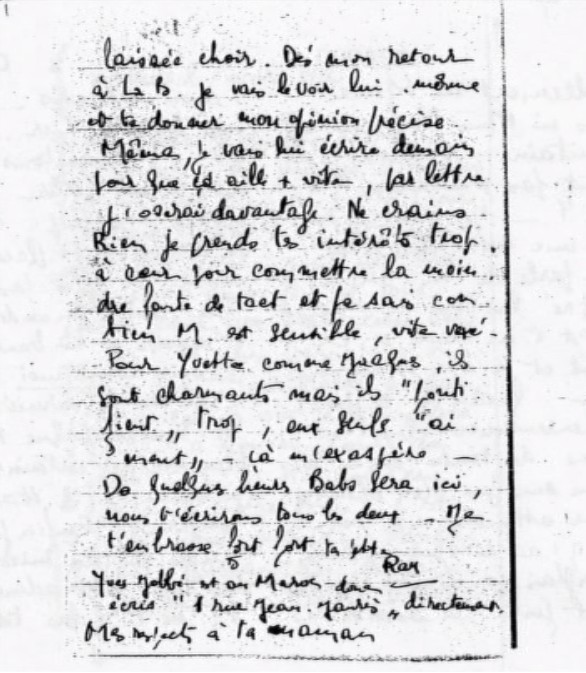 laissée choir. Dès mon retour
à La B. je vais le voir lui même
et te donner mon opinion précise
Même, je vais lui écrire demain
pour que ça aille + vite, par lettre
j'oserai davantage. Ne crains
Rien je prends tes intérêts trop
à cœur pour commettre la moin
dre faute de tact et je sais com
bien M. est sensible, vite vexé
Pour Yvette comme Jacques, ils
sont charmants mais ils "ponti
fient" trop, eux seuls "ai
ment" ça m'exaspère
De quelques heures Babs sera ici,
nous t'écrirons tous les deux. Je
t'embrasse fort fort ta
Ray
Yves est au Maroc donc
écris "1 rue Jean Jaurès" directement.
Mes respects à ta maman